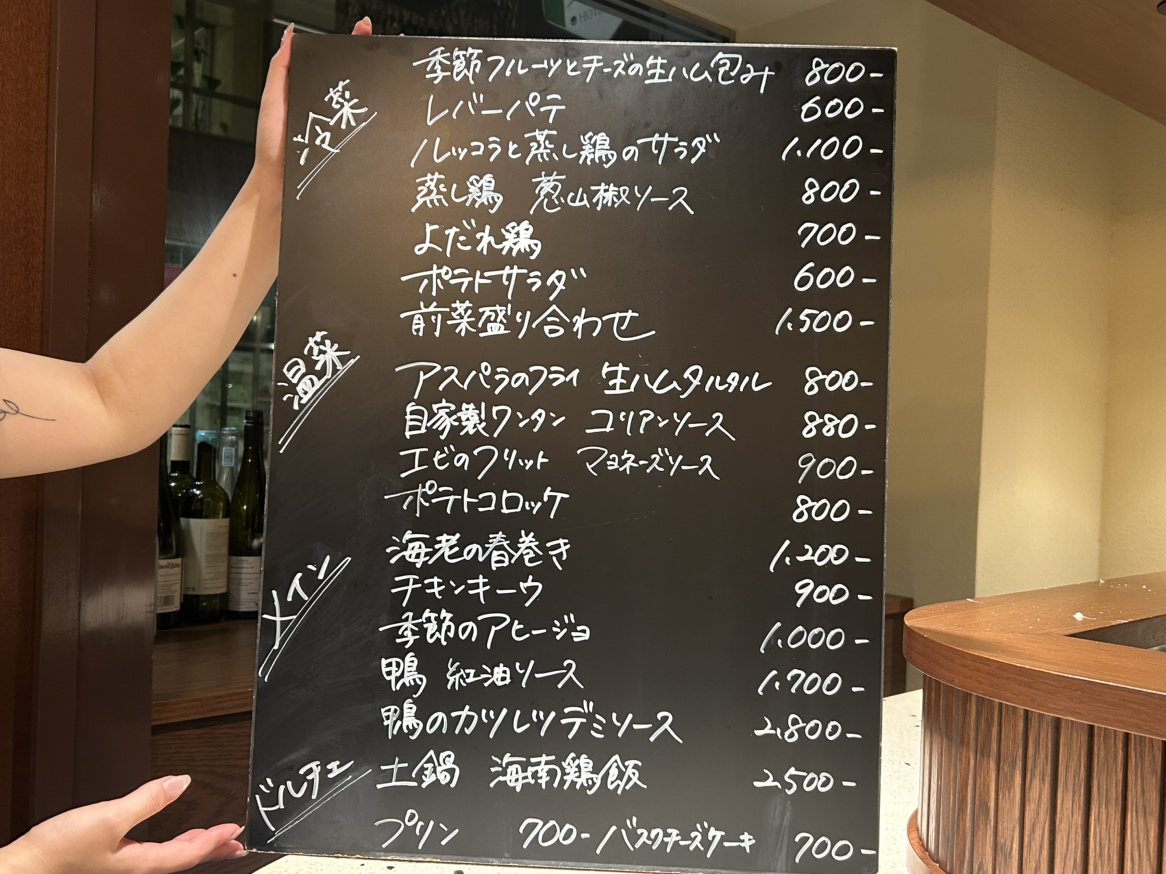 HOT
冷菜
季節フルーツとチーズの生ハム包み 800-
レバーパテ 600-
ルッコラと蒸し鶏のサラダ 1.100-
蒸し鶏 葱山椒ソース 800-
よだれ鶏 700-
ポテトサラダ 600-
前菜盛り合わせ 1.500-
温菜
アスパラのフライ 生ハムタルタル 800-
自家製ワンタン コリアンソース 880-
エビのフリット マヨネーズソース 900-
ポテトコロッケ 800-
海老の春巻き 1.200-
メイン
チキンキーウ 900-
季節のアヒージョ 1.000-
鴨 紅油ソース 1.700-
鴨のカツレツデミソース 2.800-
土鍋 海南鶏飯 2.500-
ドルチェ
プリン 700- バスクチーズケーキ 700-